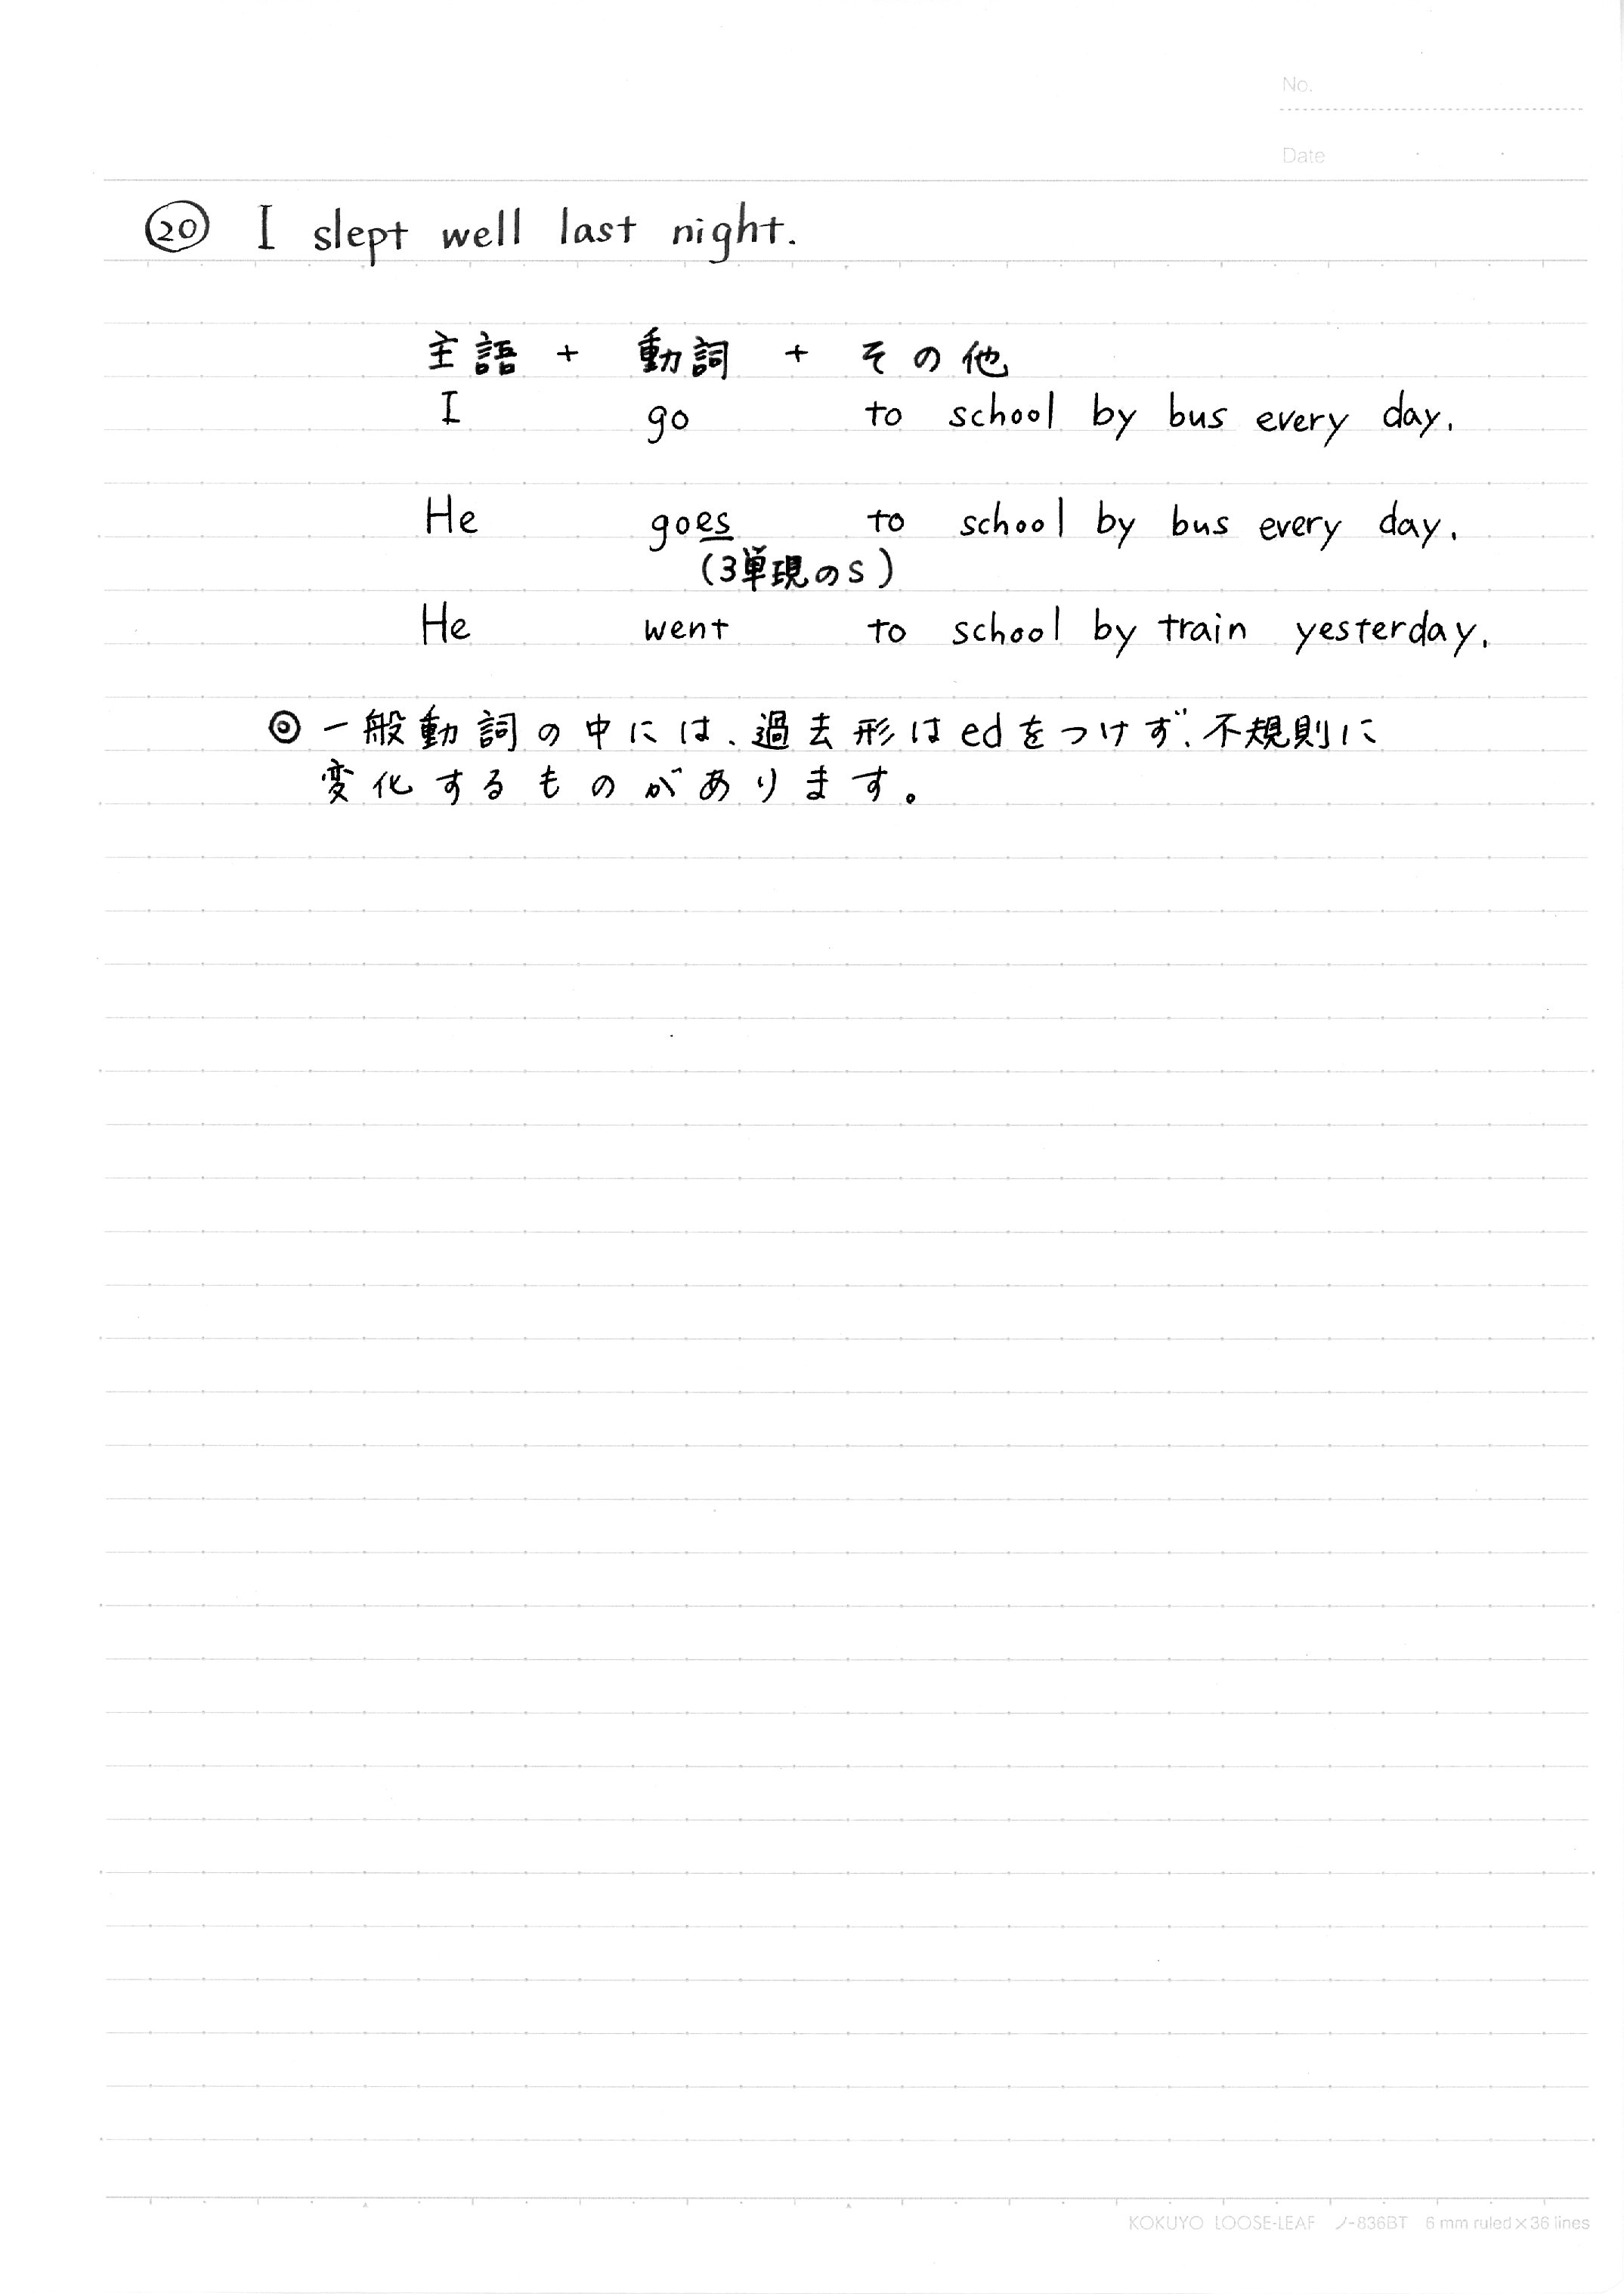 No.
Date
⑳ I slept well last night.
主語 + 動詞 + その他
I go to school by bus every day.
He goes to school by bus every day.
(3単現のs)
He went to school by train yesterday.
◎一般動詞の中には、過去形はedをつけず、不規則に
変化するものがあります。
KOKUYO LOOSE-LEAF ノ-836BT 6 mm ruled×36 lines